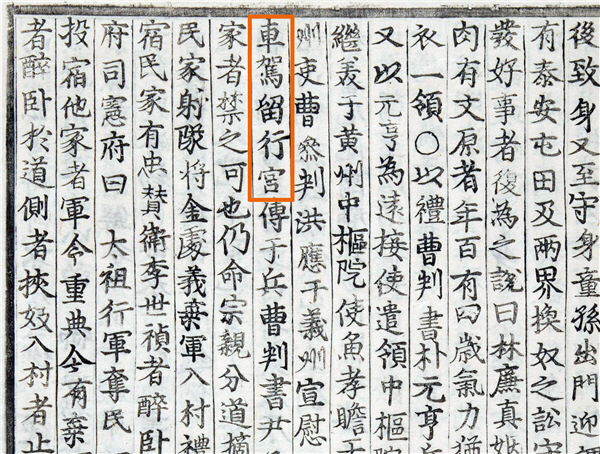 後致身又至守身童孫出門迎
有泰安屯田及兩界換奴之訟
發好事者復為之說曰林廉真
肉有文原者年百有四歲氣力猶
衣一領○以禮曹判書朴元亨
又以元亨為遠接使遣領中樞
繼美于黃州中樞院使魚孝瞻于
州吏曹叅判洪應于義州宣慰
車駕留行宮傳于兵曹判書尹
家者禁之可也仍命宗親分道摘
民家射隊將金處義棄軍入村禮
宿民家有忠贊衛李世禎者醉卧
府司憲府曰 太祖行軍奪民
投宿他家者軍令重典今有棄
者醉卧於道側者挾妓入村者止